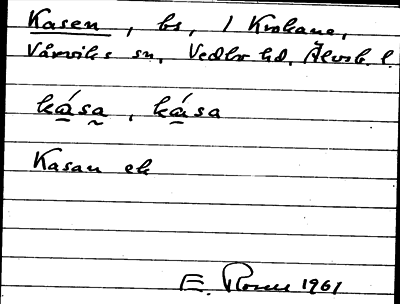 Kasen, bs, 1 Krokane,
Vårviks sn, Vedbo hd, Älvsb. l.
ká̱sa̰, ká̱sa
Kasan ek
E. Rosell 1961